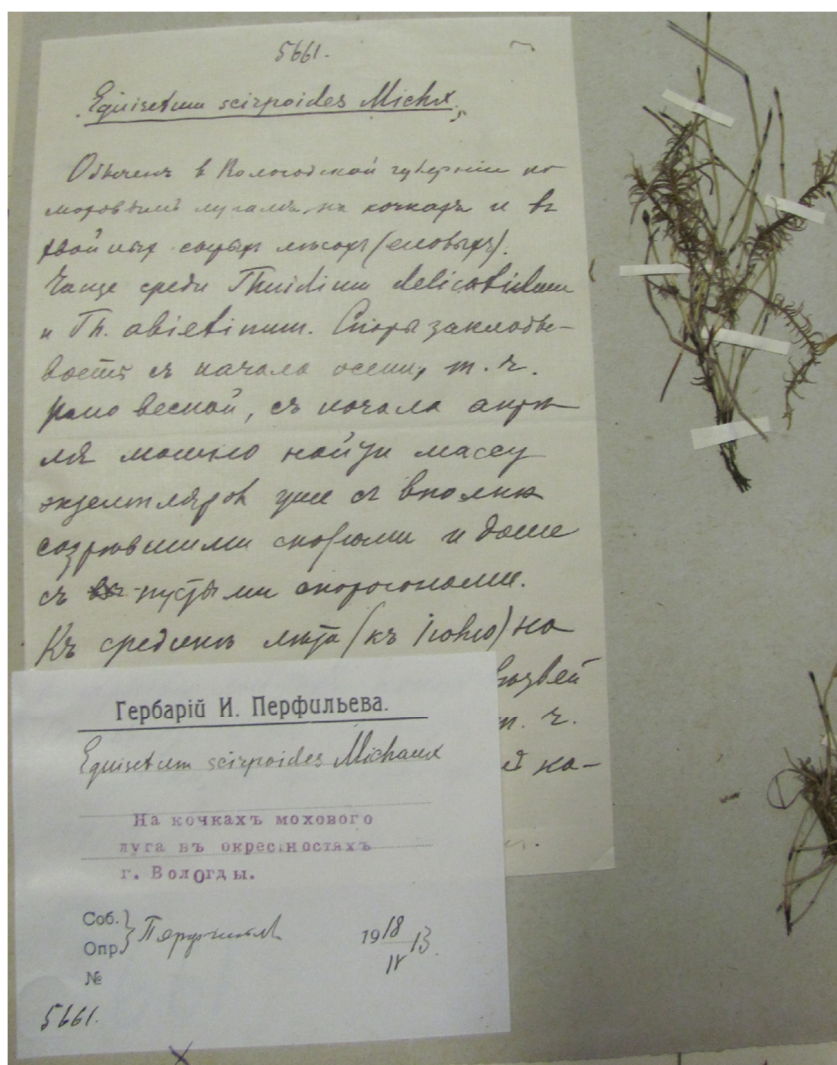 5661.
Equisetum scirpoides Michx.
Обыченъ в Вологодской губернiи по
моховымъ лугамъ, на кочкахъ и въ
хвойныхъ сырыхъ лѣсахъ (еловыхъ).
Чаще среди Thuidium delicatulum
и Th. abietinum. Споры заклады-
ваетъ съ начала осени, т. ч.
рано весной, съ начала апрѣ-
ля можно найти массу
экземпляров уже съ вполнѣ
созрѣвшими спорами и даже
съ пустыми спорогонами.
Къ срединѣ лѣта (къ iюню) на
т. ч.
й ко-
Гербарій И. Перфильева.
Equisetum scirpoides Michaux
На кочкахъ мохового
луга въ окрестностяхъ
г. Вологды.
Соб. }
Опр } Перфильев
1918/IV 13.
№
5661.